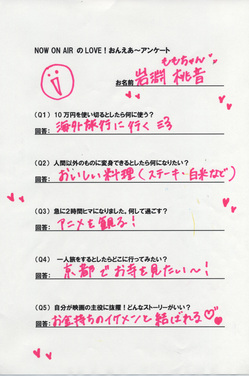 NOW ON AIR の LOVE!おんえあ~アンケート
ももちゃん
お名前 岩淵 桃音
(Q1) 10万円を使い切るとしたら何に使う?
回答: 海外旅行に行く
(Q2) 人間以外のものに変身できるとしたら何になりたい?
回答: おいしい料理(ステーキ・白米など)
(Q3) 急に2時間ヒマになりました。何して過ごす?
回答: アニメを観る!
(Q4) 一人旅をするとしたらどこに行ってみたい?
回答: 京都でお寺を見たい~!
(Q5) 自分が映画の主役に抜擢!どんなストーリーがいい?
回答: お金持ちのイケメンと結ばれる